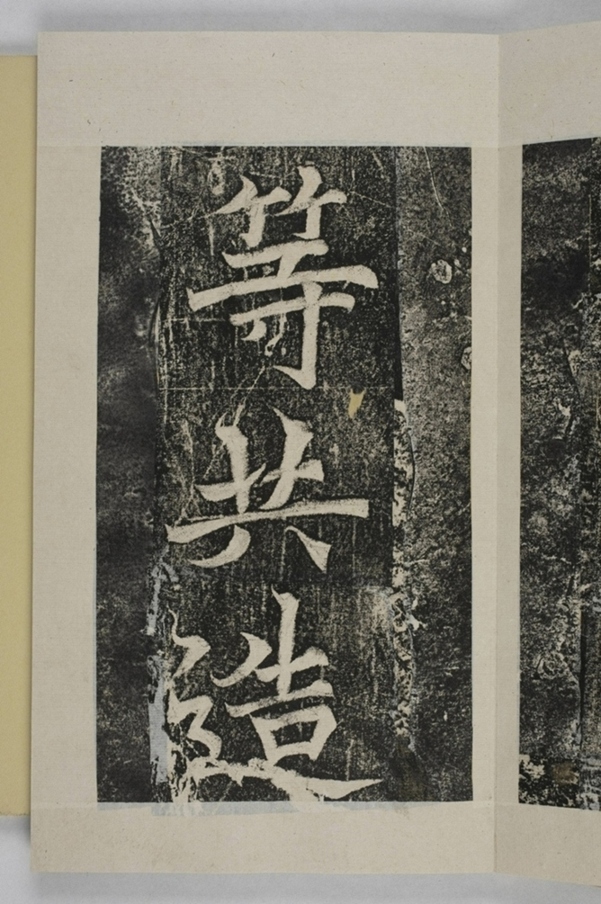 等共造